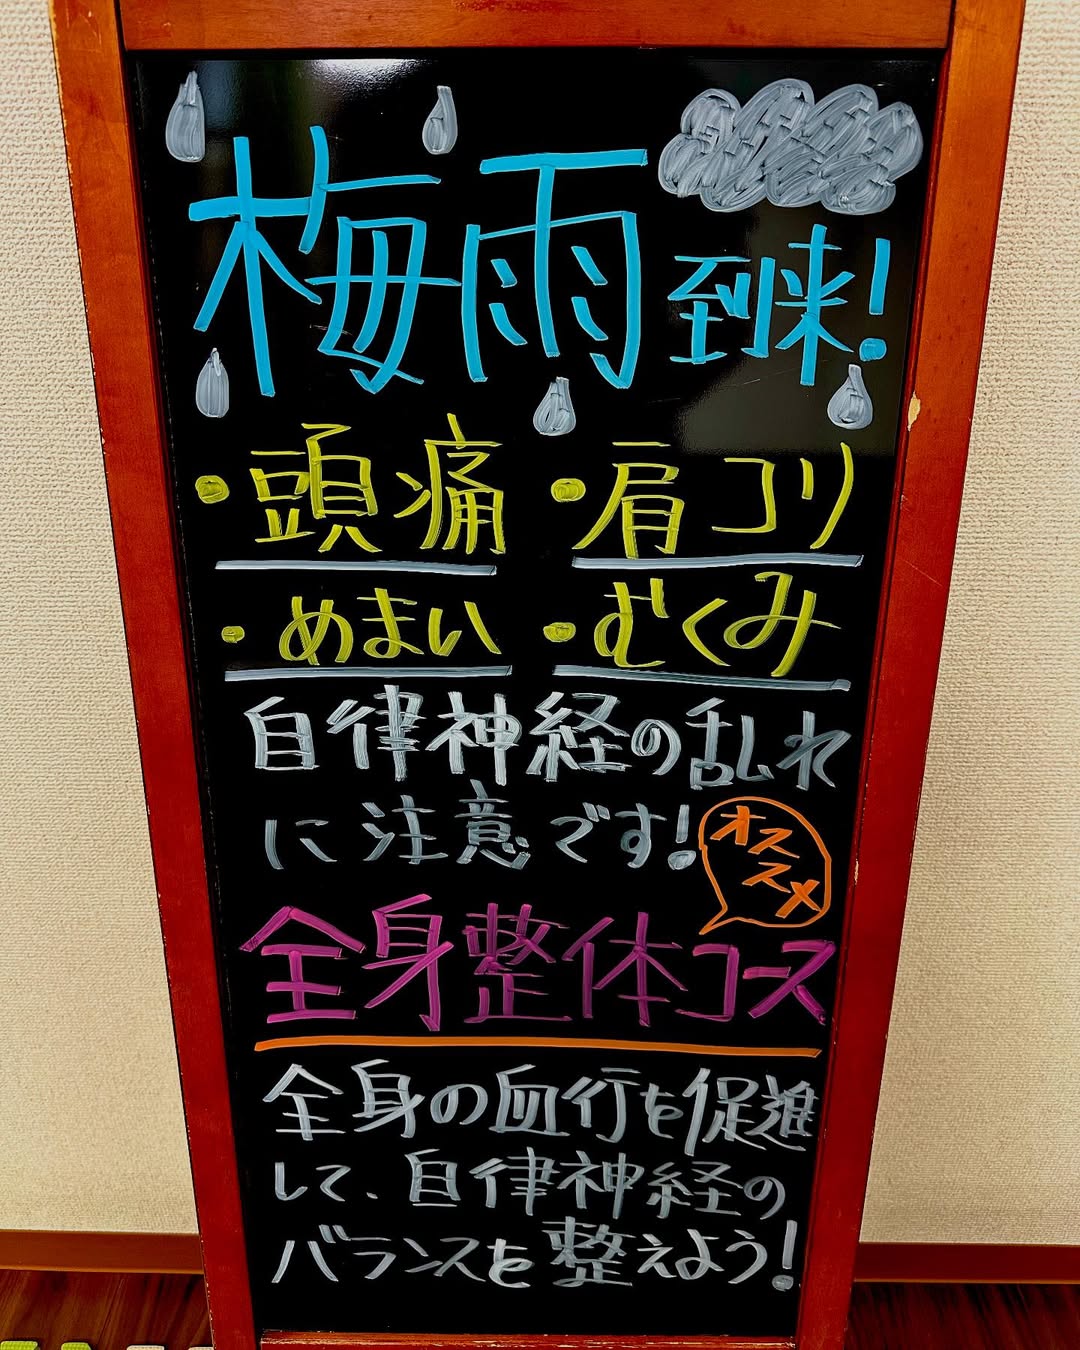 梅雨到来!
・頭痛 ・肩コリ
・めまい ・むくみ
自律神経の乱れ
に注意です!
オススメ
全身整体コース
全身の血行を促進
して、自律神経の
バランスを整えよう!